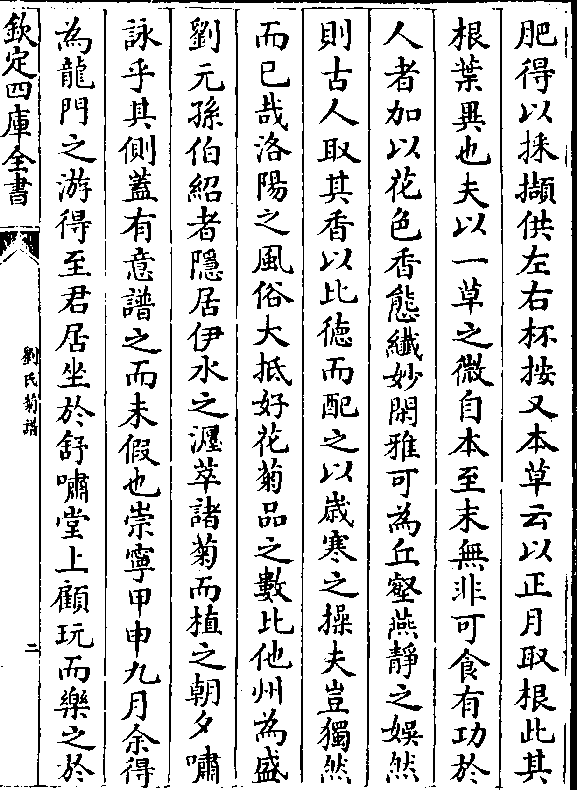 肥得以採擷供左右杯按又本草云以正月取根此其
根葉異也夫以一草之微自本至末無非可食有功於
人者加以花色香態纖妙閑雅可為丘壑燕靜之娛然
則古人取其香以比徳而配之以歳寒之操夫豈獨然
而已哉洛陽之風俗大抵好花菊品之數比他州為盛
劉元孫伯紹者隱居伊水之瀍萃諸菊而植之朝夕嘯
詠乎其側蓋有意譜之而未假也崇寧甲申九月余得
為龍門之游得至君居坐於舒嘯堂上顧玩而樂之於
欽定四庫全書
劉氏菊譜
二